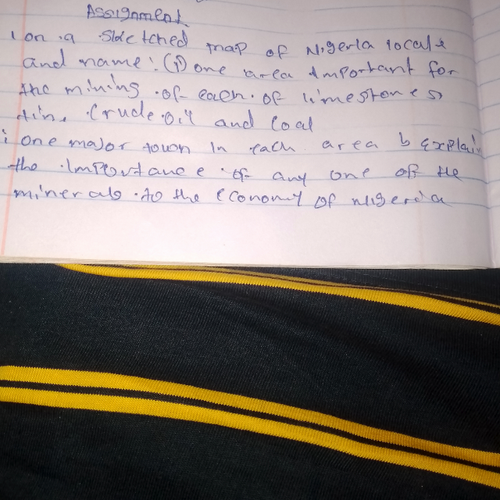 Assignment
1 on a sketched map of Nigeria locate
and name: (i) one area important for
the mining of each of limestones
tin, crude oil and coal
i one major town in each area b Explain
the importance of any one of the
minerals to the economy of Nigeria